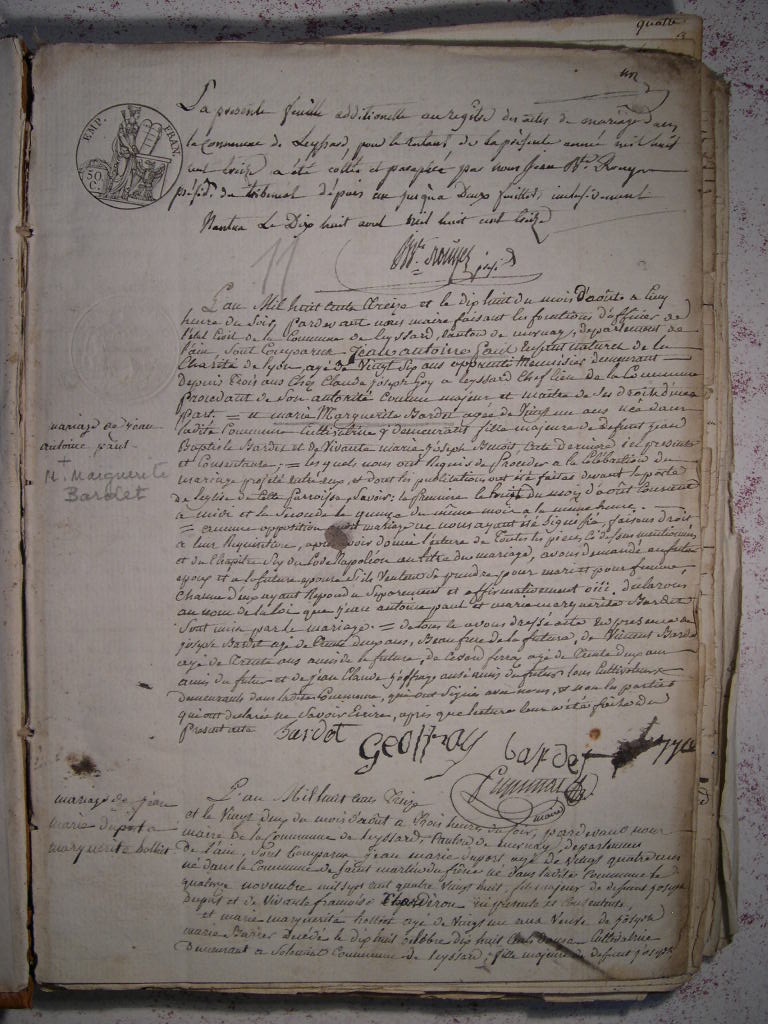 quatre
un
EMP. FRAN.
50 C.
La presente feuille additionelle au registre des actes de mariage dans
la commune de Leyssard, pour le restant de la présente année mil huit
cent treize a été cottée et parafée par nous Jean Bte Rouyer
présidt du tribunal depuis un jusqu'a Deux feuillets inclusivement
Nantua Le Dix huit aout mil huit cent treize
Bte Rouyer
L'an Mil huit Cents Treize et le dix huit du mois d'aôut a
heure du Soir, pardevant nous maire faisant les fonctions d'officier de
l'état Civil de la Commune de Leyssard, Canton de , departement de
l'ain Sont Comparus Jean antoine paul Enfant naturel de la
Charité de Lyon, agé de Vingt Six ans apprentif Menuisier demeurant
Depuis trois ans Chez Claude joseph Goy a Leyssard Chef lieu de la Commune
Procedant de Son autorité Comme majeur et maitre de Ses droits d'une
Part. = et marie Marguerite Bardet agée de Vingt un ans née dans
ladite Commune Cultivatrice y demeurant fille majeure de defunt jean
Baptiste Bardet et de Vivante marie joseph Benoit, Cette derniere ici presente
et Consentante; = lesquels nous ont Requis de Proceder a la Celebration du
mariage projeté entr'eux, et dont les publications ont été faites devant la porte
de l'eglise de Cette Parroisse, Savoir: la premiere le huit du mois d'aôut Courant
a midi et la Seconde le quinze du même mois a la meme heure.
= aucune opposition audit mariage ne nous ayant été Signifiée, faisant droit
a leur Requisition, après avoir donné lecture de Toutes les pièces Ci dessus mentionnées
et du Chapitre Six du Code Napoléon au titre du mariage, avons demandé au futur
epoux et a la future epouse S'ils Veulent Se prendre pour mari et pour femme,
Chacun d'eux ayant Repondu Séparement et affirmativement oüi; declarons
au nom de la loi que jean antoine paul et marie marguerite Bardet
Sont unis par le mariage. = de tout Ce avons dressé acte en presence de
joseph Bardet agé de trente deux ans, Beau frere de la future, de Vincent Bardet
agé de trente ans amis de la future, de Ferra agé de trente deux ans
amis du futur et de jean Claude Geoffray aussi amis du futur tous Cultivateurs
demeurants dans ladite Commune, qui ont Signés avec nous, et non les parties
qui ont declarées ne Savoir Ecrire, après que lecture leur a été faite du
Present acte
Bardet
Geoffray
bardet
maire
mariage de jean
antoine paul
M. Marguerite
Bardet
mariage de jean
marie dupont a
marguerite hollet
L'an Mil huit Cents Treize
et le Vingt deux du mois d'aôut a trois heures du soir, pardevant nous
maire de la Commune de Leyssard, Canton de , departement
de l'ain, Sont Comparus jean marie dupont, agé de Vingt quatre ans
né dans la Commune de Saint martin du frêne né dans ladite Commune le
quatorze novembre mil sept cent quatre Vingt huit, fils majeur de defunt joseph
dupont et de Vivante françoise ici presente et Consentante,
et marie marguerite hollet agé de Vingt un ans Veuve de joseph
marie Decedé le dix huit octobre dix huit Cent douze Cultivatrice
Demeurant a Solomiat Commune de Leyssard, fille majeure de defunt joseph